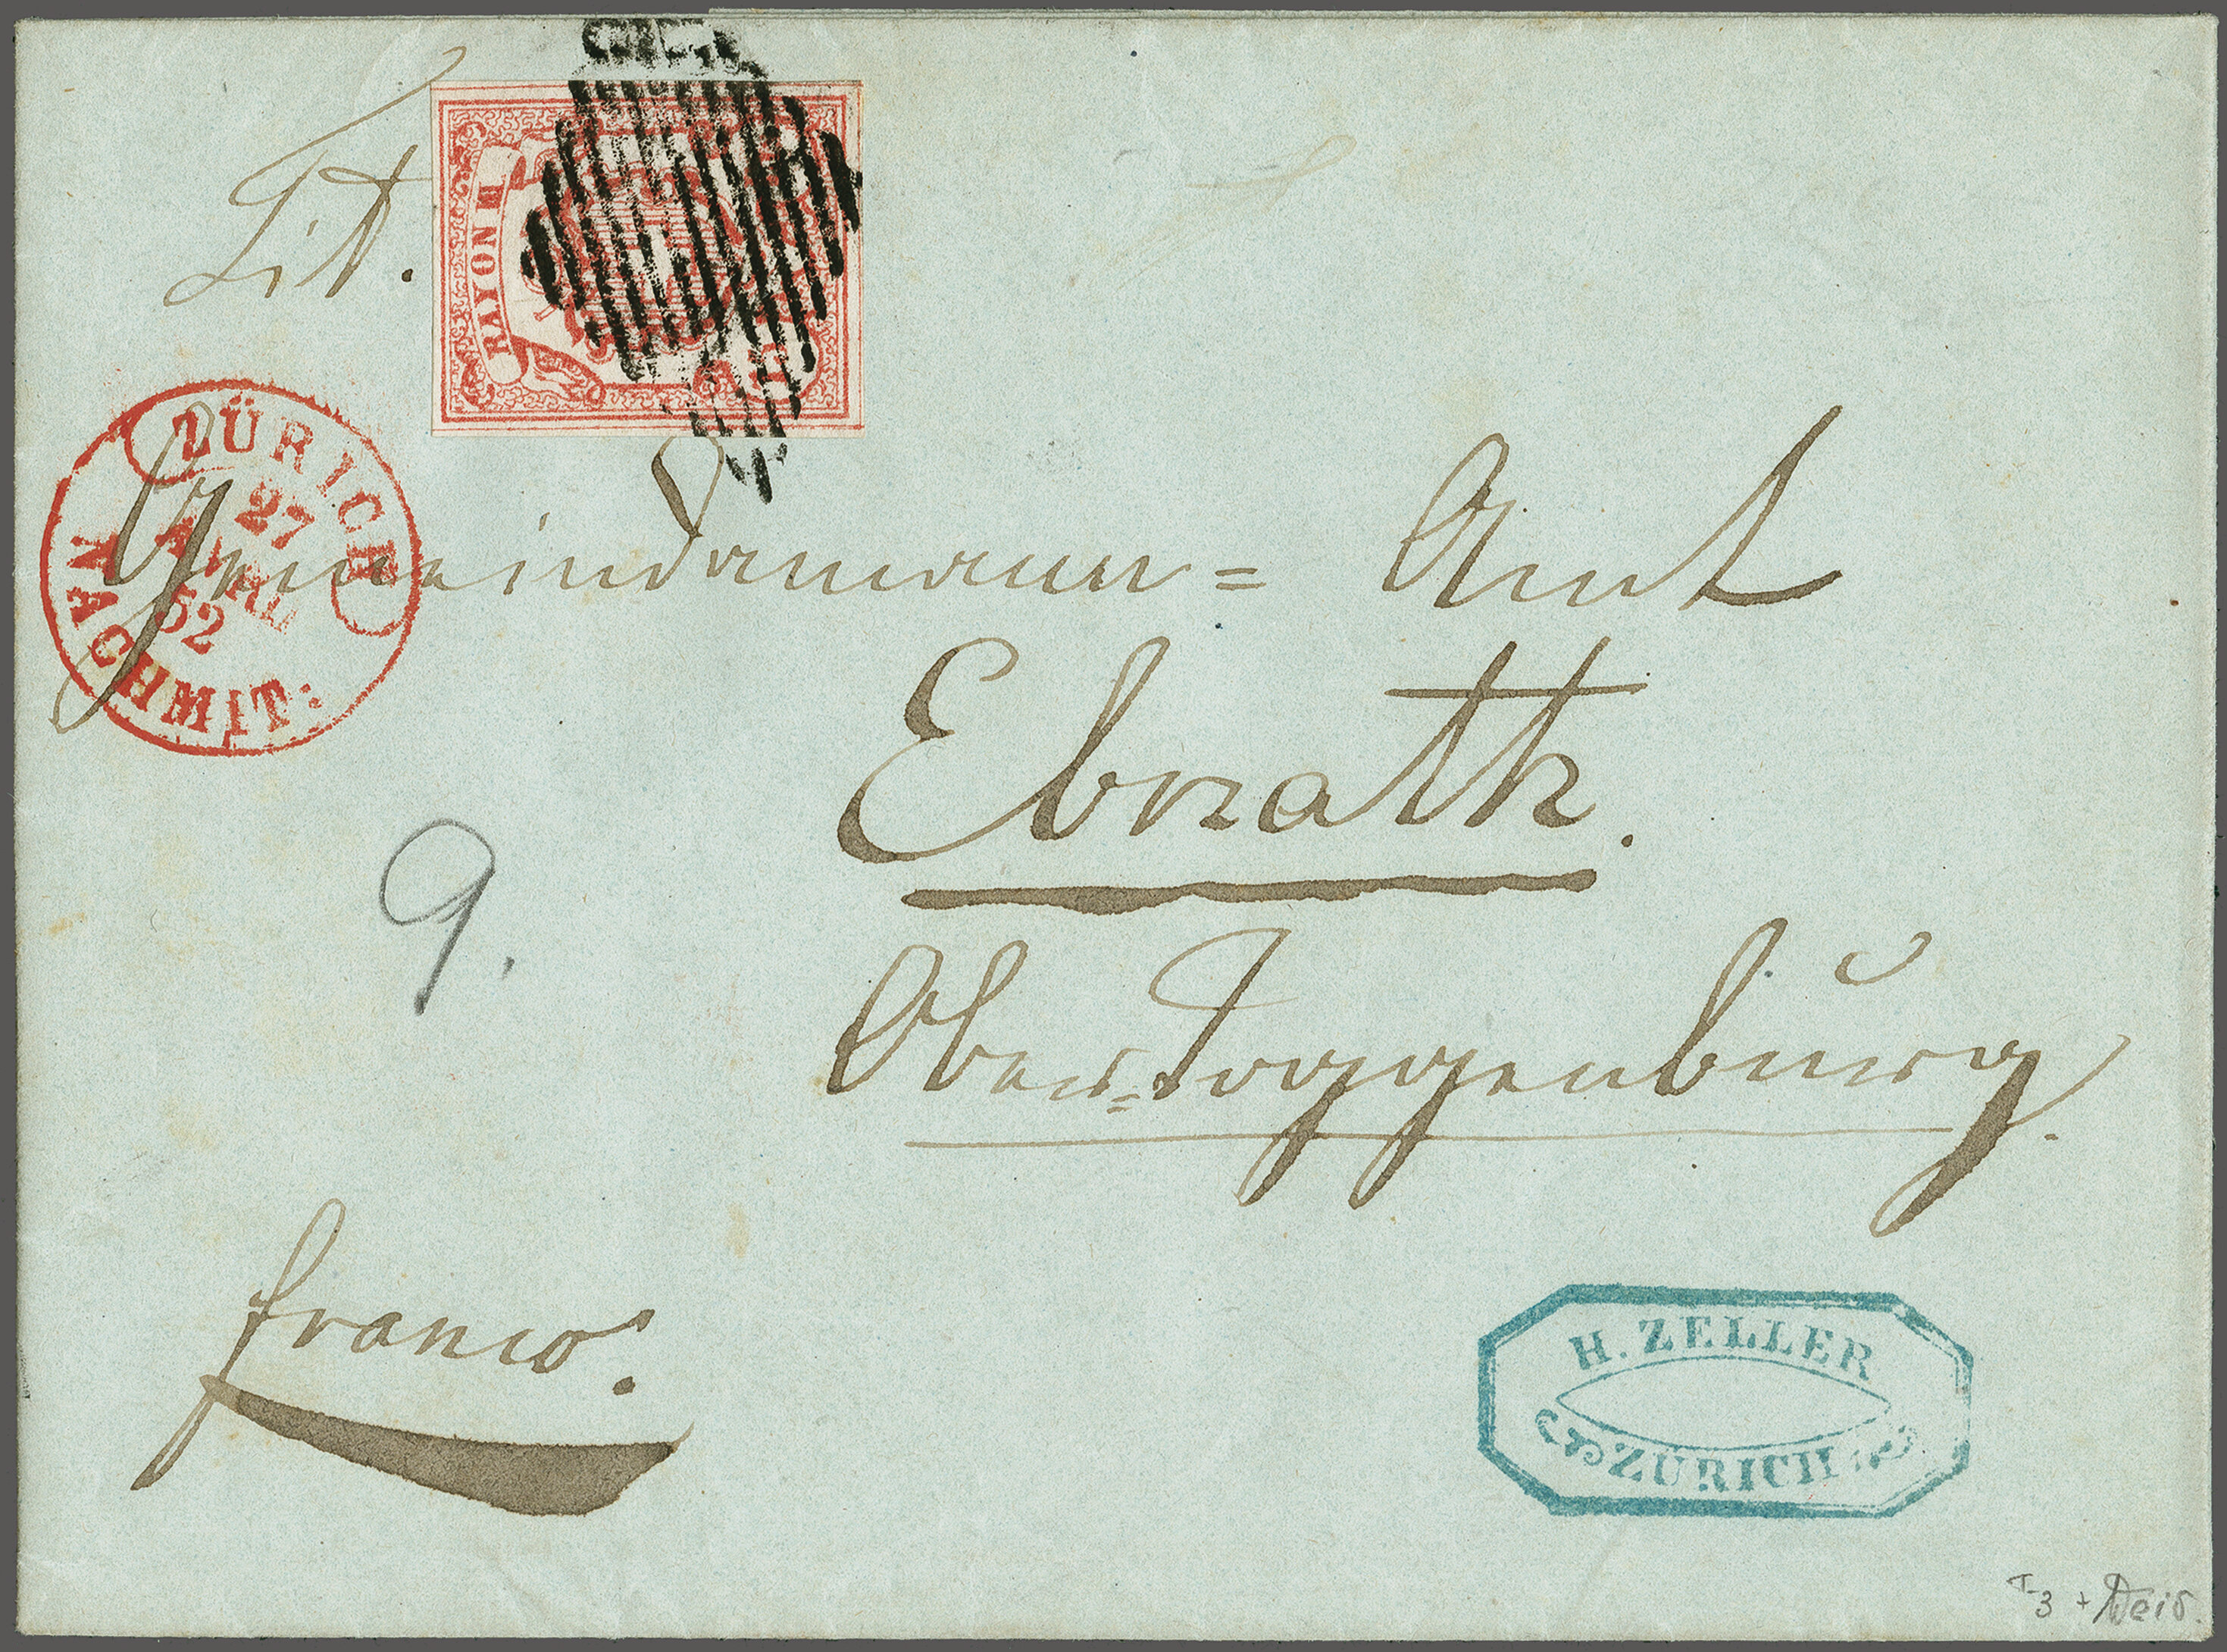 Tit.
RAYON III
ZÜRICH
27
AVRIL
52
NACHMIT:
Gemeindamann = Amt
Ebnath.
Ober=Toggenburg.
9.
franco.
H. ZELLER
ZÜRICH
T3 +